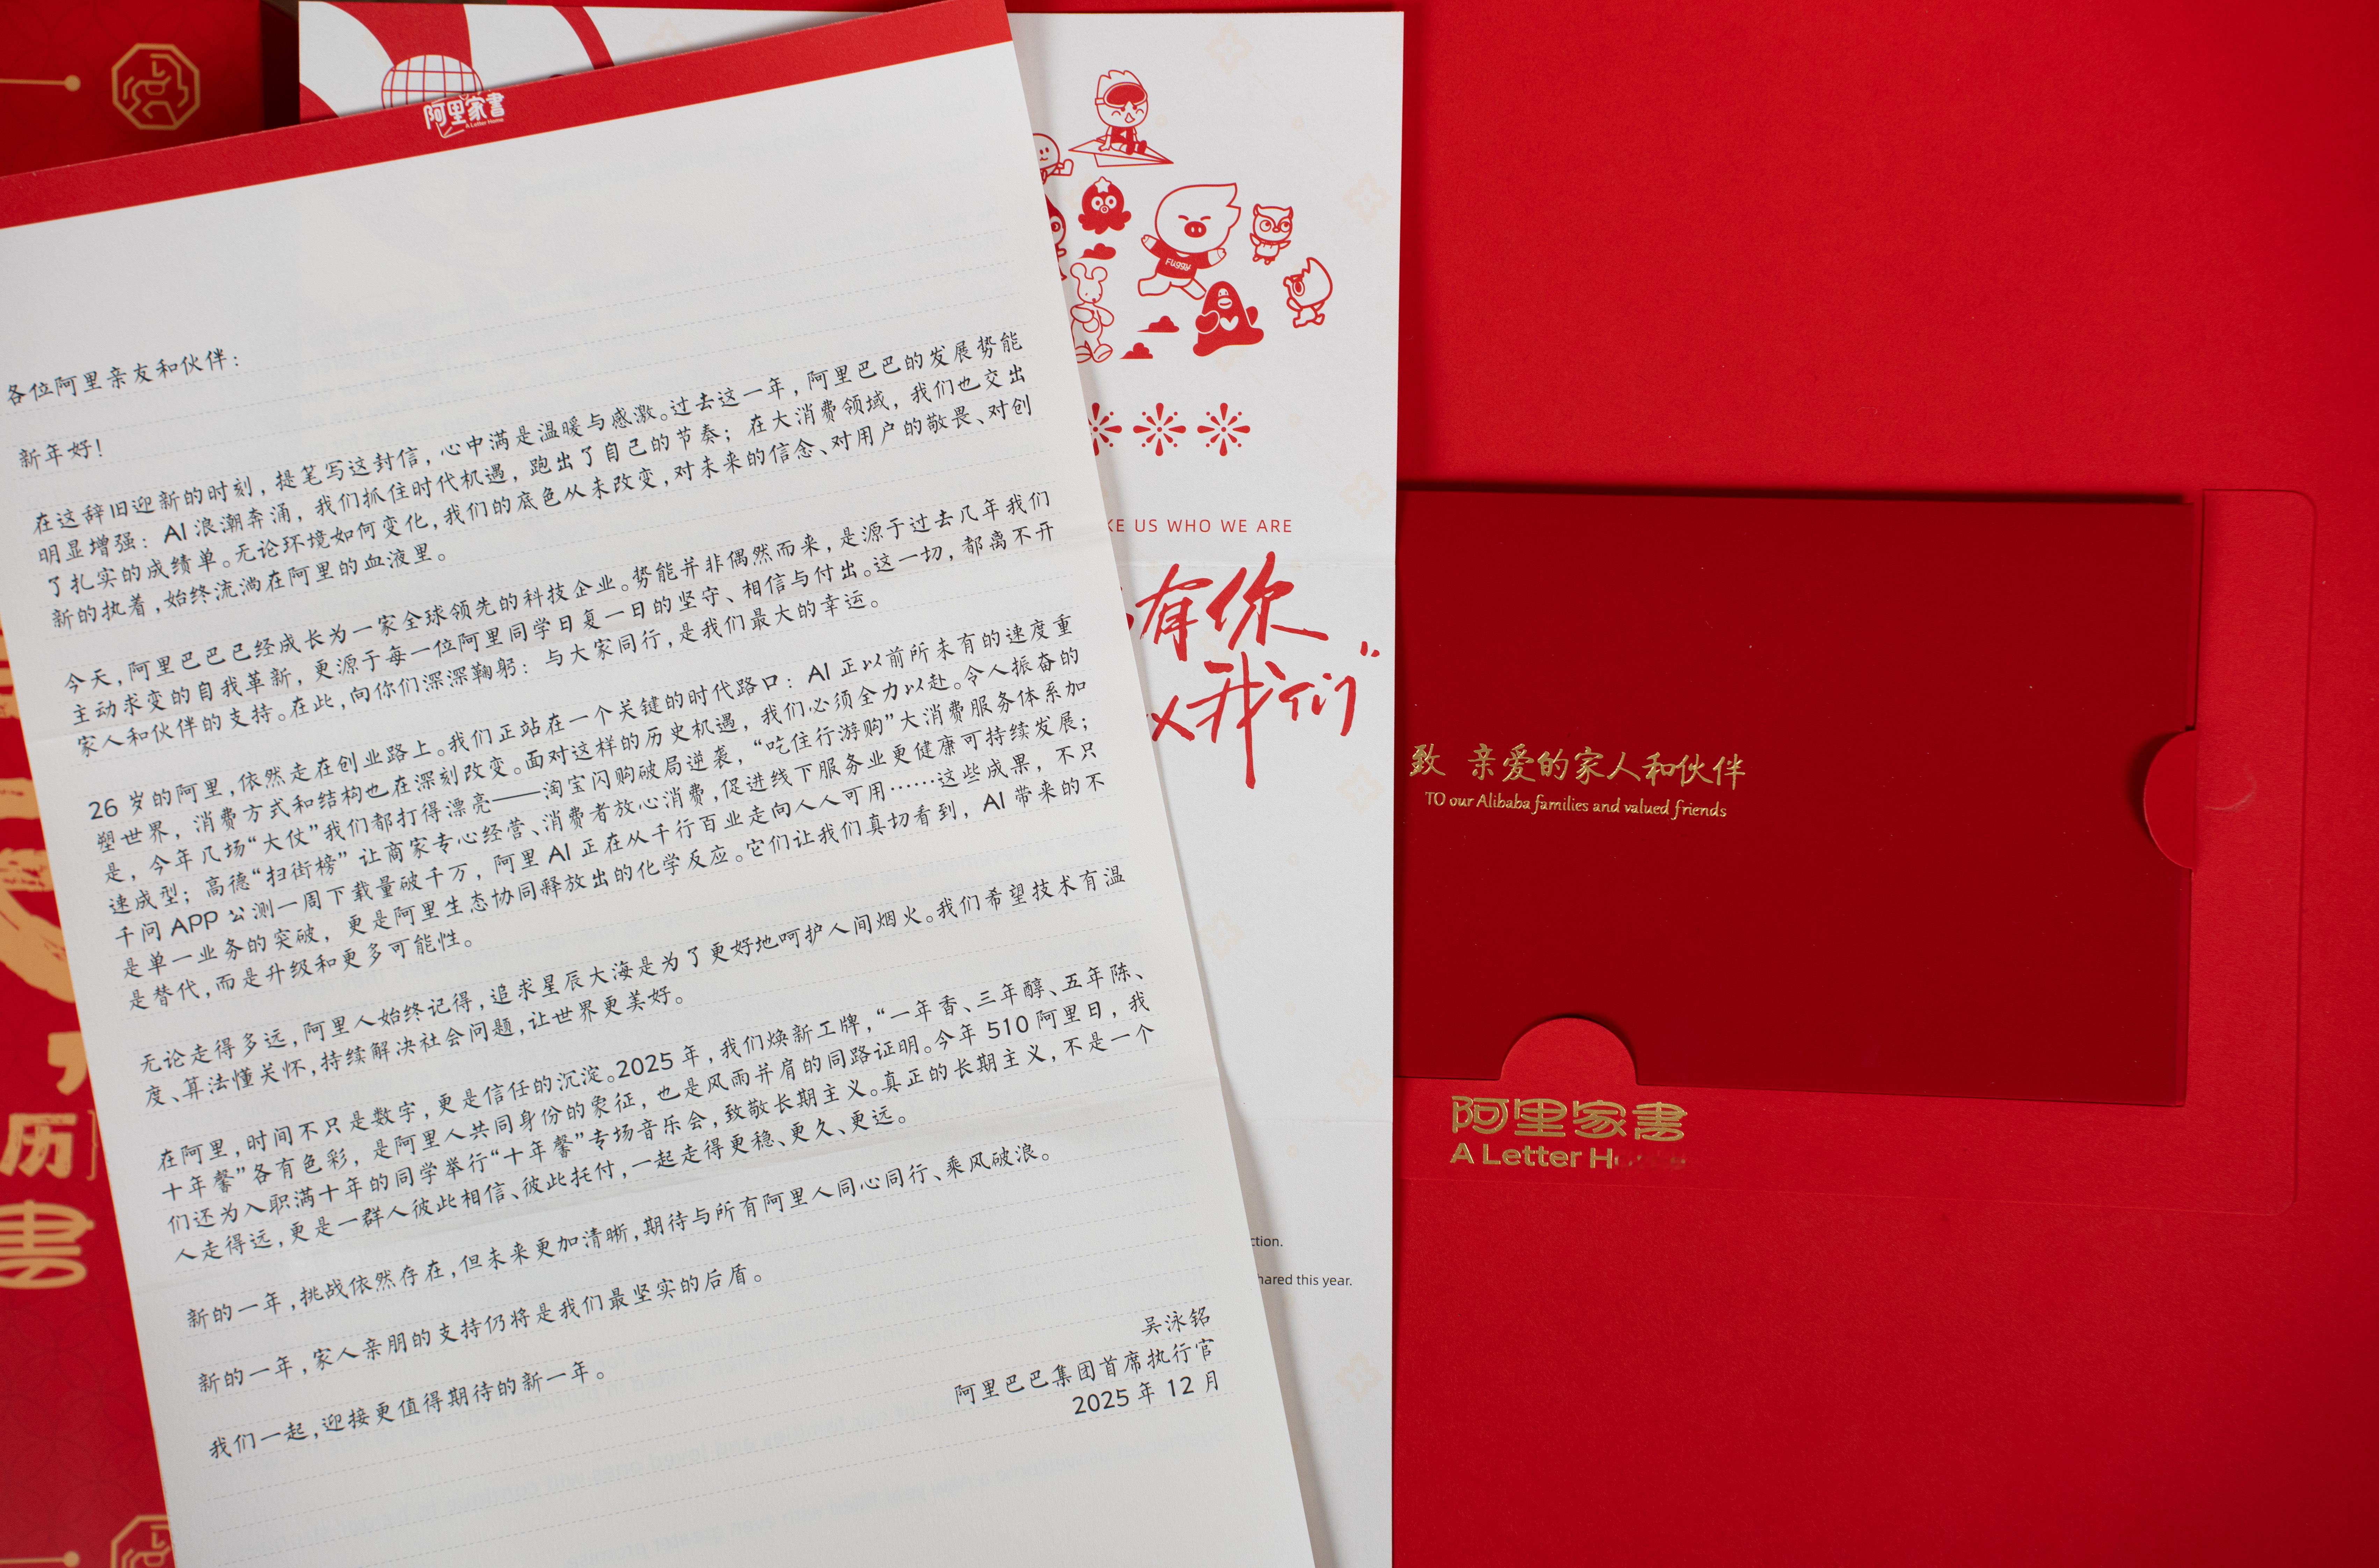 阿里家書
A Letter Home
各位阿里亲友和伙伴：
新年好！
在这辞旧迎新的时刻，提笔写这封信，心中满是温暖与感激。过去这一年，阿里巴巴的发展势能
明显增强：AI 浪潮奔涌，我们抓住时代机遇，跑出了自己的节奏；在大消费领域，我们也交出
了扎实的成绩单。无论环境如何变化，我们的底色从未改变，对未来的信念、对用户的敬畏、对创
新的执着，始终流淌在阿里的血液里。
今天，阿里巴巴已经成长为一家全球领先的科技企业。势能并非偶然而来，是源于过去几年我们
主动求变的自我革新，更源于每一位阿里同学日复一日的坚守、相信与付出。这一切，都离不开
家人和伙伴的支持。在此，向你们深深鞠躬：与大家同行，是我们最大的幸运。
26 岁的阿里，依然走在创业路上。我们正站在一个关键的时代路口：AI 正以前所未有的速度重
塑世界，消费方式和结构也在深刻改变。面对这样的历史机遇，我们必须全力以赴。令人振奋的
是，今年几场“大仗”我们都打得漂亮——淘宝闪购破局逆袭，“吃住行游购”大消费服务体系加
速成型；高德“扫街榜”让商家专心经营、消费者放心消费，促进线下服务业更健康可持续发展；
千问 APP 公测一周下载量破千万，阿里 AI 正在从千行百业走向人人可用……这些成果，不只
是单一业务的突破，更是阿里生态协同释放出的化学反应。它们让我们真切看到，AI 带来的不
是替代，而是升级和更多可能性。
无论走得多远，阿里人始终记得，追求星辰大海是为了更好地呵护人间烟火。我们希望技术有温
度、算法懂关怀，持续解决社会问题，让世界更美好。
在阿里，时间不只是数字，更是信任的沉淀。2025 年，我们焕新工牌，“一年香、三年醇、五年陈、
十年馨”各有色彩，是阿里人共同身份的象征，也是风雨并肩的同路证明。今年 510 阿里日，我
们还为入职满十年的同学举行“十年馨”专场音乐会，致敬长期主义。真正的长期主义，不是一个
人走得远，更是一群人彼此相信、彼此托付，一起走得更稳、更久、更远。
新的一年，挑战依然存在，但未来更加清晰，期待与所有阿里人同心同行、乘风破浪。
新的一年，家人亲朋的支持仍将是我们最坚实的后盾。
我们一起，迎接更值得期待的新一年。
吴泳铭
阿里巴巴集团首席执行官
2025 年 12 月
Fuggy
US WHO WE ARE
有你
我们”
ction.
hared this year.
致 亲爱的家人和伙伴
TO our Alibaba families and valued friends
阿里家書
A Letter
历
書